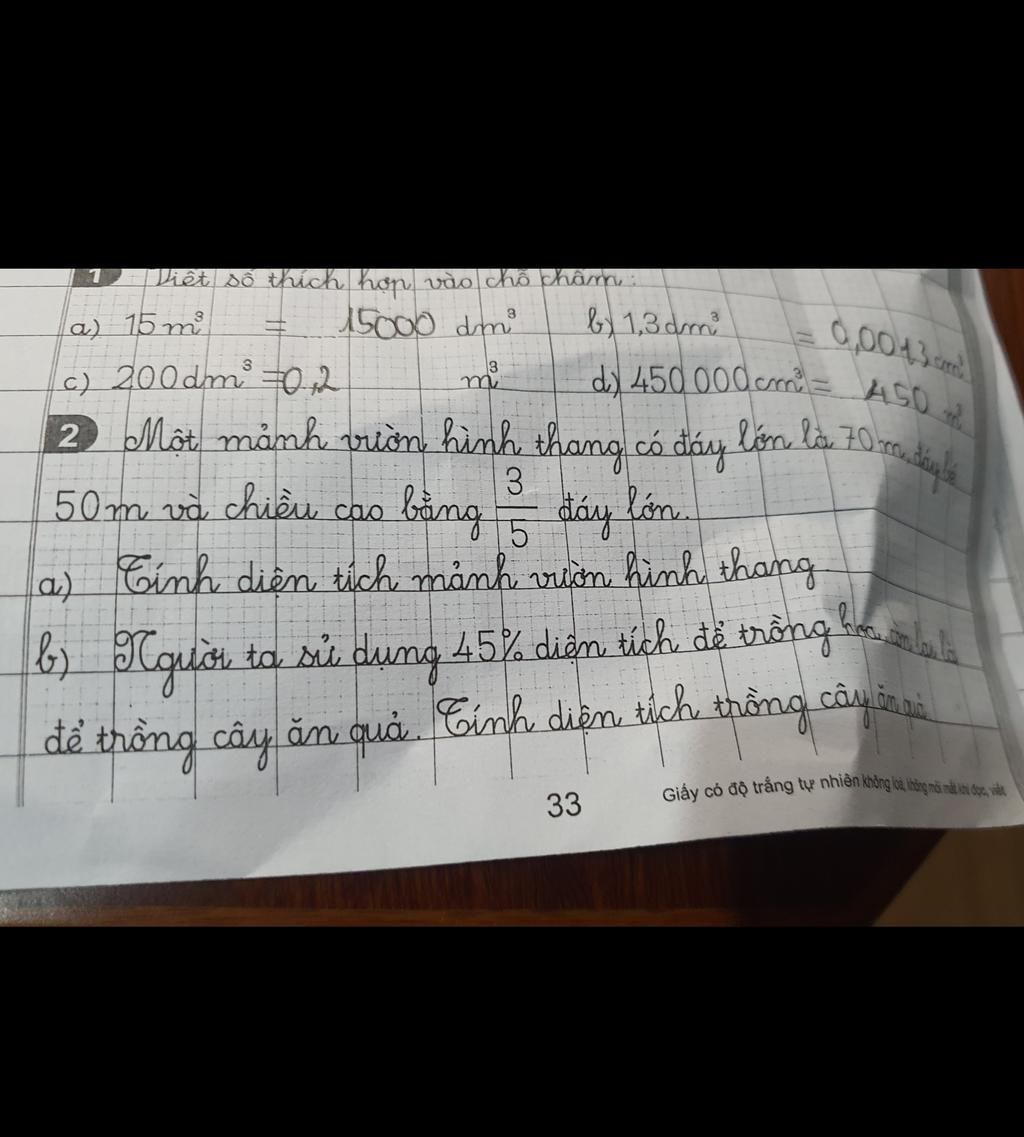 1 Viết số thích hợp vào chỗ chấm:
a) 15m³ = 15000 dm³ b) 1,3dm³ = 0,0013 cm³
c) 200dm³ = 0,2 m³ d) 450 000cm³ = 450 m³
2 Một mảnh vườn hình thang có đáy lớn là 70m, đáy bé
50m và chiều cao bằng 3/5 đáy lớn.
a) Tính diện tích mảnh vườn hình thang
b) Người ta sử dụng 45% diện tích để trồng hoa, còn lại là
để trồng cây ăn quả. Tính diện tích trồng cây ăn quả
33
Giấy có độ trắng tự nhiên không loá, không mỏi mắt khi đọc, viết